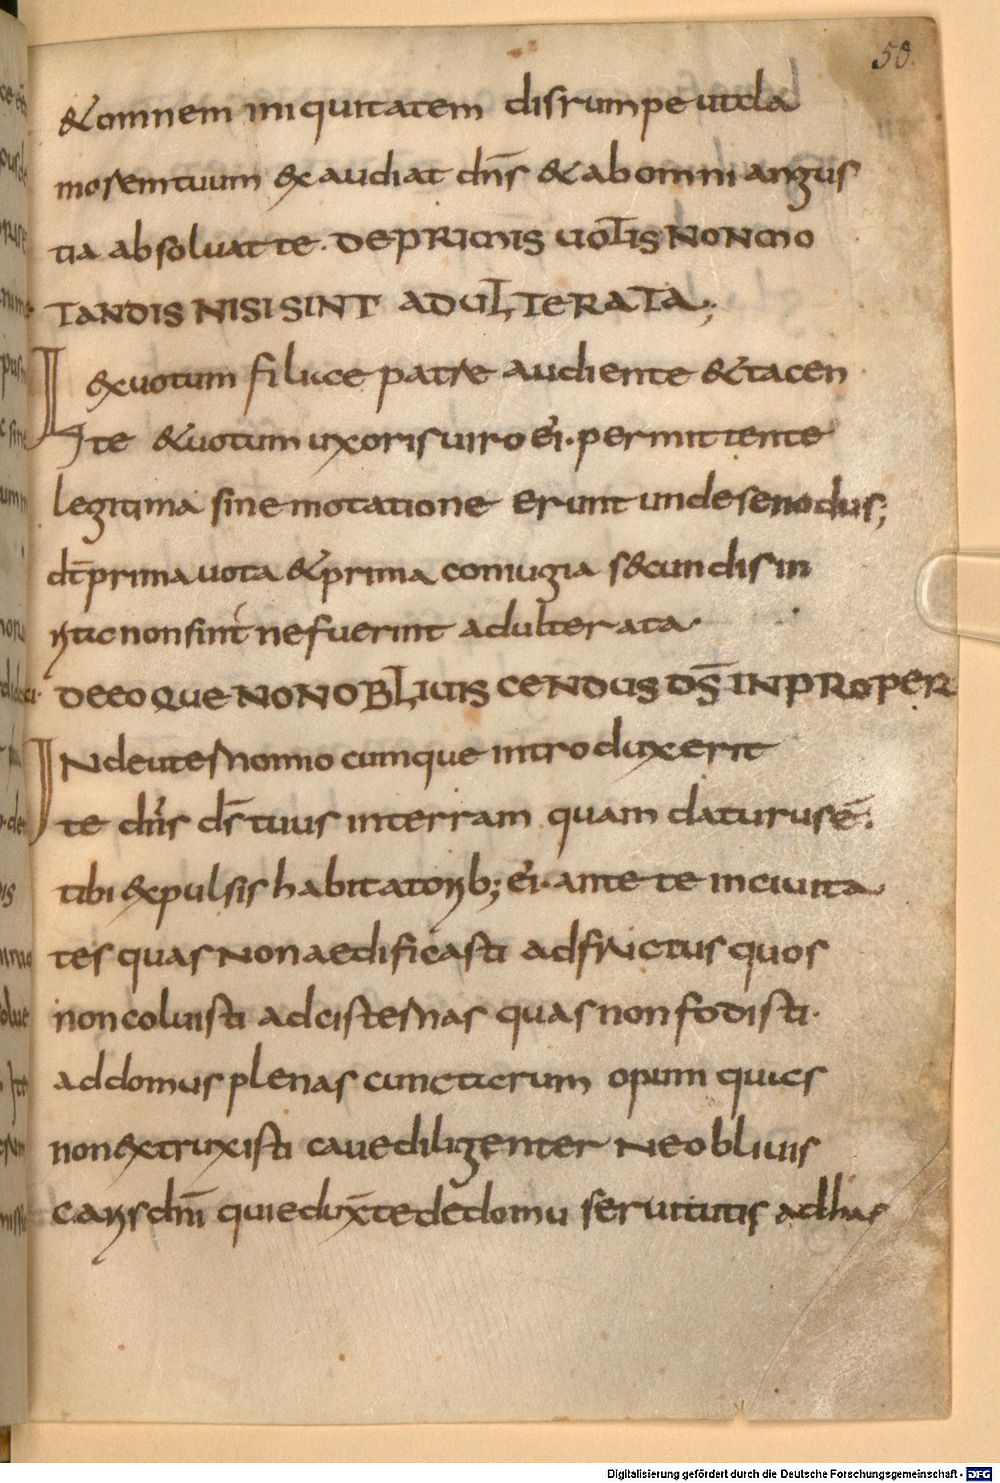 50.
&omnem iniquitatem disrumpe utcla
morem tuum exaudiat dn̄s & ab omni angus
tia absoluat te. DE PRIMIS UOTIS NON MO
TANDIS NISI SINT ADULTERATA;
Lex uotum filiae patre audiente & tacen
te & uotum uxoris uiro ei· permittente
legitima sine motatione erunt unde senodus;
dt̄ prima uota & prima coniugia secundis in
ritic non sint ne fuerint adulterata·
DE EO QUE NON OBLIUISCENDUS DS̄ IN PROSPER
IN deuternomio cumque introduxerit
te dn̄s ds̄ tuus in terram quam daturus ē.
tibi expulsis habitatorib; ei· ante te in ciuita
tes quas Non aedificasti ad frictus quos
non coluisti ad cisternas quas non fodisti·
ad domus plenas cunctierum opum quies
non extruxisti caue diligenter Ne obliuis
caris dn̄i qui eduxt̄ te de domu seruitutis adhuc
Digitalisierung gefördert durch die Deutsche Forschungsgemeinschaft - DFG